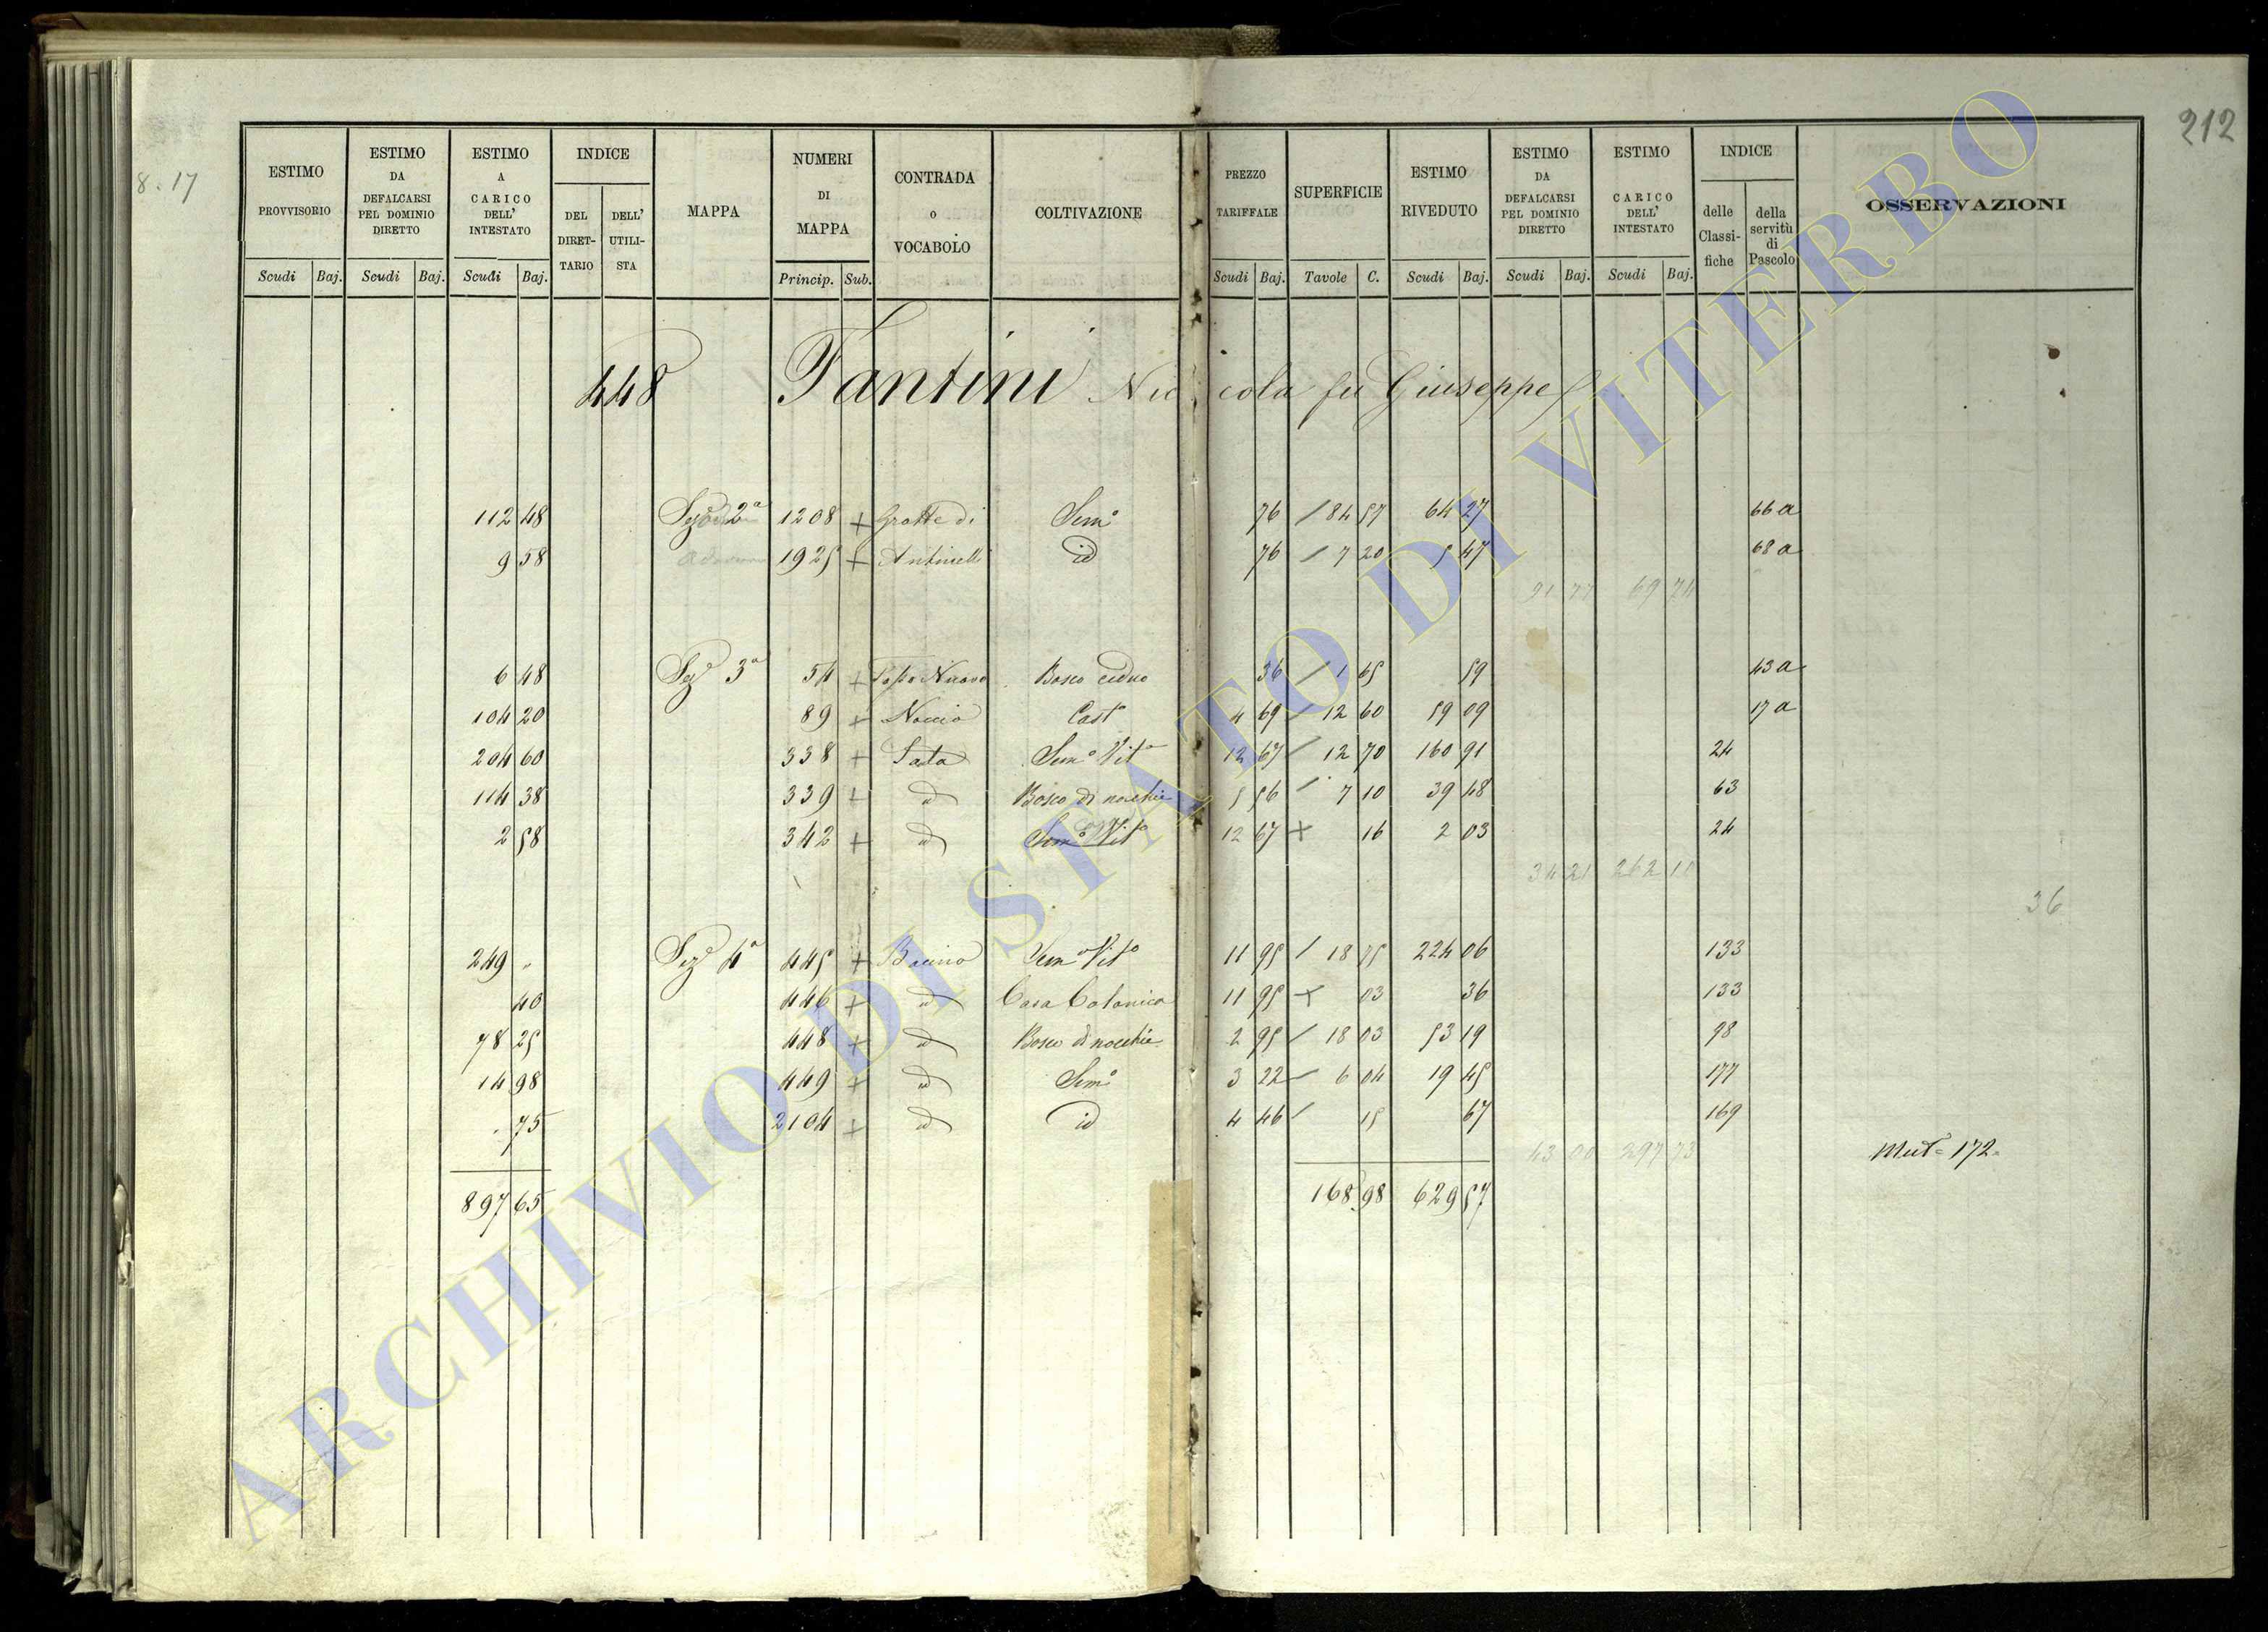 212
8.17
ESTIMO PROVVISORIO | ESTIMO DA DEFALCARSI PEL DOMINIO DIRETTO | ESTIMO A CARICO DELL' INTESTATO | INDICE | MAPPA | NUMERI DI MAPPA | CONTRADA O VOCABOLO | COLTIVAZIONE | PREZZO TARIFFALE | SUPERFICIE | ESTIMO RIVEDUTO | ESTIMO DA DEFALCARSI PEL DOMINIO DIRETTO | ESTIMO CARICO DELL' INTESTATO | INDICE | OSSERVAZIONI
DEL DIRETTARIO | DELL' UTILISTA | delle Classifiche | della servitù di Pascolo
Scudi Baj. | Scudi Baj. | Scudi Baj. | Princip. Sub. | Scudi Baj. | Tavole C. | Scudi Baj. | Scudi Baj. | Scudi Baj.
448 Fantini Niccola fu Giuseppe
112 48 | Sez. 2a | 1208 + | Grotte di | Sem.o | 76 / 84 57 | 64 27 | 66 a
9 58 | 1925 + | Antinelli | id | 76 / 7 20 | 5 47 | 68 a
91 77 | 69 74
6 48 | Sez. 3a | 54 + | Fosso Nuovo | Bosco ceduo | 36 / 1 65 | 59 | 43 a
104 20 | 89 + | Noccio | Cast.o | 4 69 / 12 60 | 59 09 | 17 a
204 60 | 338 + | Sem.o Vit.o | 12 67 / 12 70 | 160 91 | 24
114 38 | 339 + | id | Bosco di nocchie | 5 56 / 7 10 | 39 48 | 63
2 58 | 342 + | id | Sem.o Vit.o | 12 67 + 16 | 2 03 | 24
34 21 | 262 10
36
249 " | Sez. 4a | 445 + | Sem.o Vit.o | 11 95 / 18 75 | 224 06 | 133
40 | 446 + | id | Casa Colonica | 11 95 + 03 | 36 | 133
78 25 | 448 + | id | Bosco di nocchie | 2 95 / 18 03 | 53 19 | 98
14 98 | 449 + | id | Sem.o | 3 22 / 6 04 | 19 45 | 177
. 75 | 2104 + | id | id | 4 46 / 15 | 67 | 169
43 00 | 297 73 | Mut= 172.
897 65 | 168 98 | 629 57
ARCHIVIO DI STATO DI VITERBO